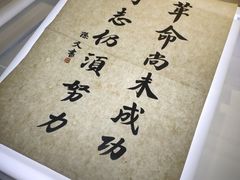 革命尚未成功
志仍須努力
孫文書